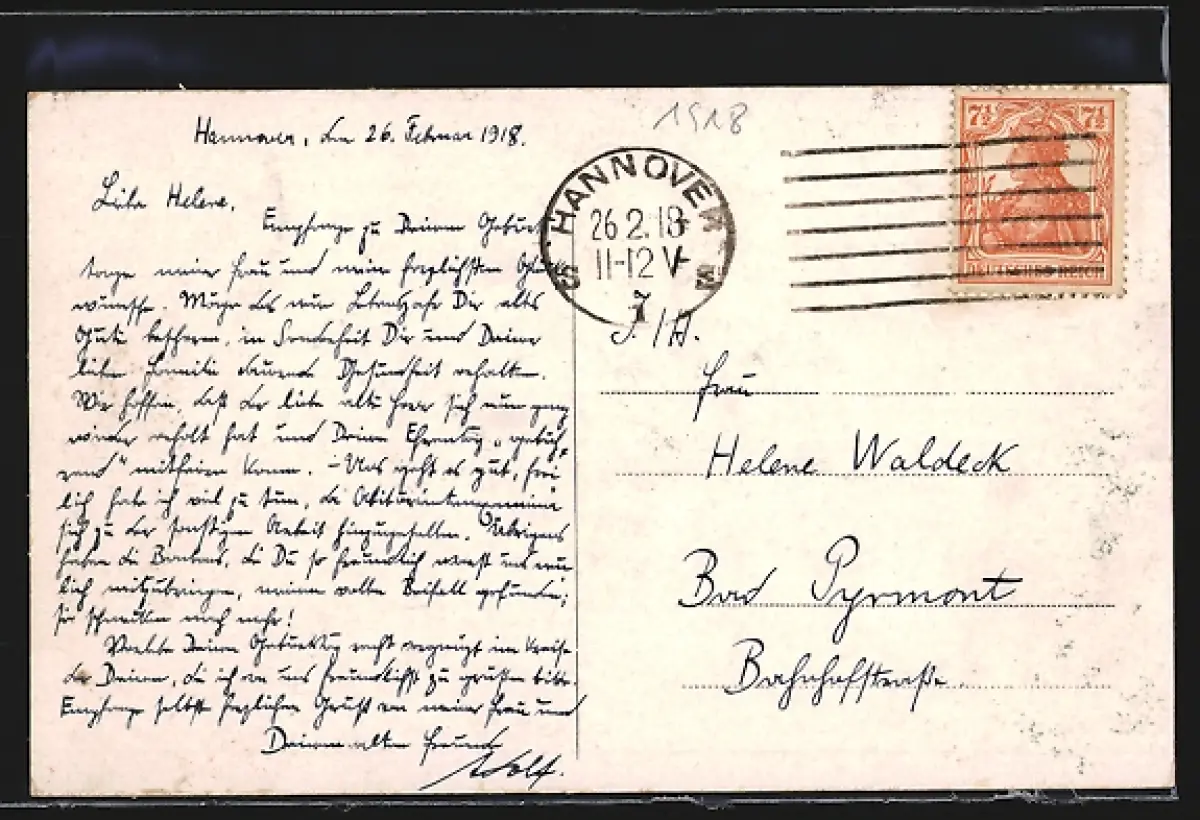 Hannover, den 26. Februar 1918.
Liebe Helene,
Empfange zu Deinem Geburts
tage meiner Frau und meine herzlichsten Glück
wünsche. Möge das neue Lebensjahr Dir alles
Gute bescheren, in Sonderheit Dir und Deiner
lieben Familie dauernde Gesundheit erhalten.
Wir hoffen, daß der liebe alte Herr sich nun ganz
wieder erholt hat und Deinen Ehrentag „gebüh-
rend“ mitfeiern kann. – Uns geht es gut, frei
lich habe ich viel zu tun, da
sich zu der sonstigen Arbeit hinzugesellen. Übrigens
haben die Bonbons, die Du so freundlich warst uns neu
lich mitzubringen, meinen vollen Beifall gefunden;
sie schmeckten nach mehr!
Verlebe Deinen Geburtstag recht vergnügt im Kreise
der Deinen, die ich von uns freundlichst zu grüßen bitte.
Empfange selbst herzlichen Gruß von meiner Frau und
Deinem alten Freund
Adolf.
1918
HANNOVER
26.2.18
11-12 V
7½ 7½
DEUTSCHES REICH
Frau
Helene Waldeck
Bad Pyrmont
Bahnhofstraße